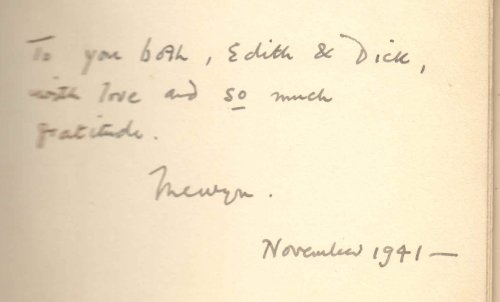 To you both, Edith & Dick,
with love and so much
gratitude.
Merwyn.
November 1941 —